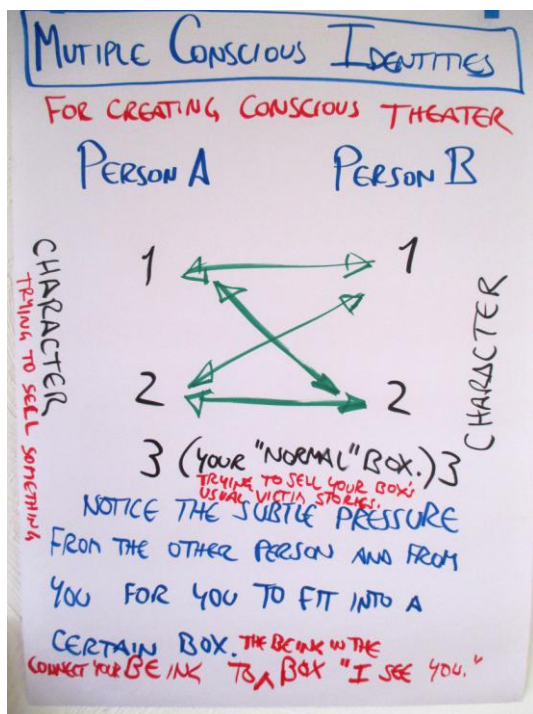 MUTIPLE CONSCIOUS IDENTITIES
FOR CREATING CONSCIOUS THEATER
PERSON A PERSON B
CHARACTER
TRYING TO SELL SOMETHING
1 1
2 2
CHARACTER
3 (YOUR "NORMAL" BOX.) 3
TRYING TO SELL YOUR BOX'S
USUAL VICTIM STORIES.
NOTICE THE SUBTLE PRESSURE
FROM THE OTHER PERSON AND FROM
YOU FOR YOU TO FIT INTO A
CERTAIN BOX. THE BEING IN THE
CONNECT YOUR BEING TO ^ BOX "I SEE YOU."